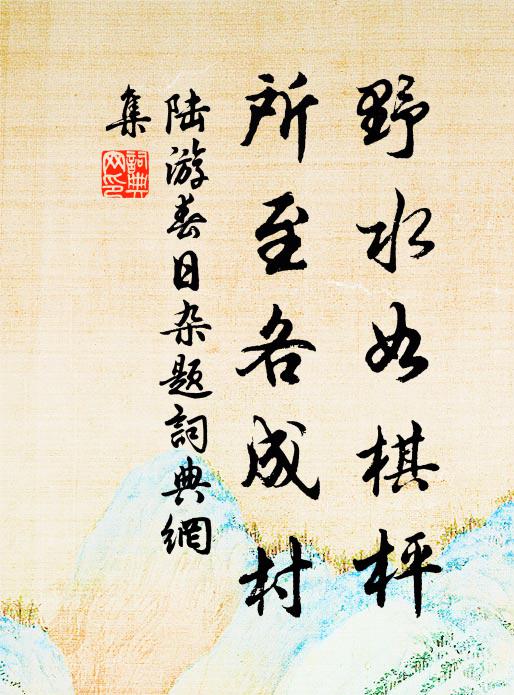 野水如棋枰
所至各成村
陆游春日杂题詞典網
集
詞典
网印